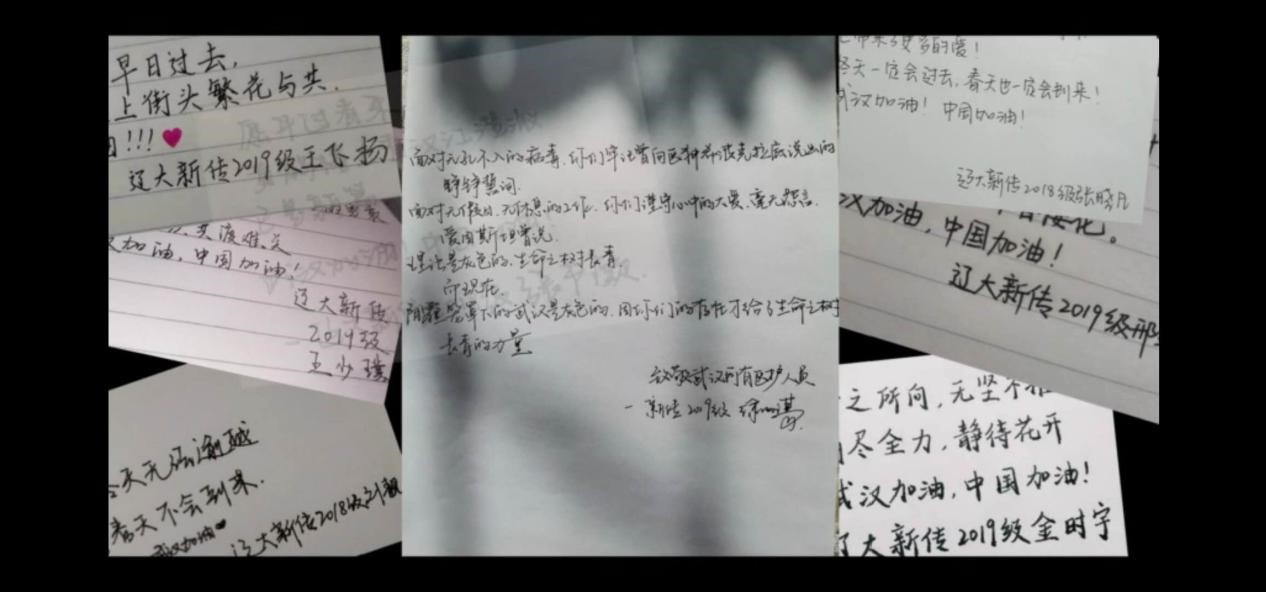 早日过去,
上街头繁花与共.
!!!
辽大新传2019级王飞扬
共渡难关
加油, 中国加油!
辽大新传
2019级
王少
春天不会到来.
辽大新传2018级刘
面对无孔不入的病毒, 你们牢记曾向医神希波克拉底说出的
铮铮誓词.
面对无假日、无休息的工作, 你们谨守心中的大爱, 毫无怨言.
爱因斯坦曾说.
理论是灰色的, 生命之树长青
而现在
阴霾笼罩下的武汉是灰色的, 因你们的存在才给了生命之树
长青的力量
致敬武汉所有医护人员
一新传2019级
带来更多的爱!
冬天一定会过去, 春天也一定会到来!
武汉加油! 中国加油!
辽大新传2018级张晓凡
汉加油, 中国加油!
辽大新传2019级邢
之所向, 无坚不
尽全力, 静待花开
武汉加油, 中国加油!
辽大新传2019级金时宇